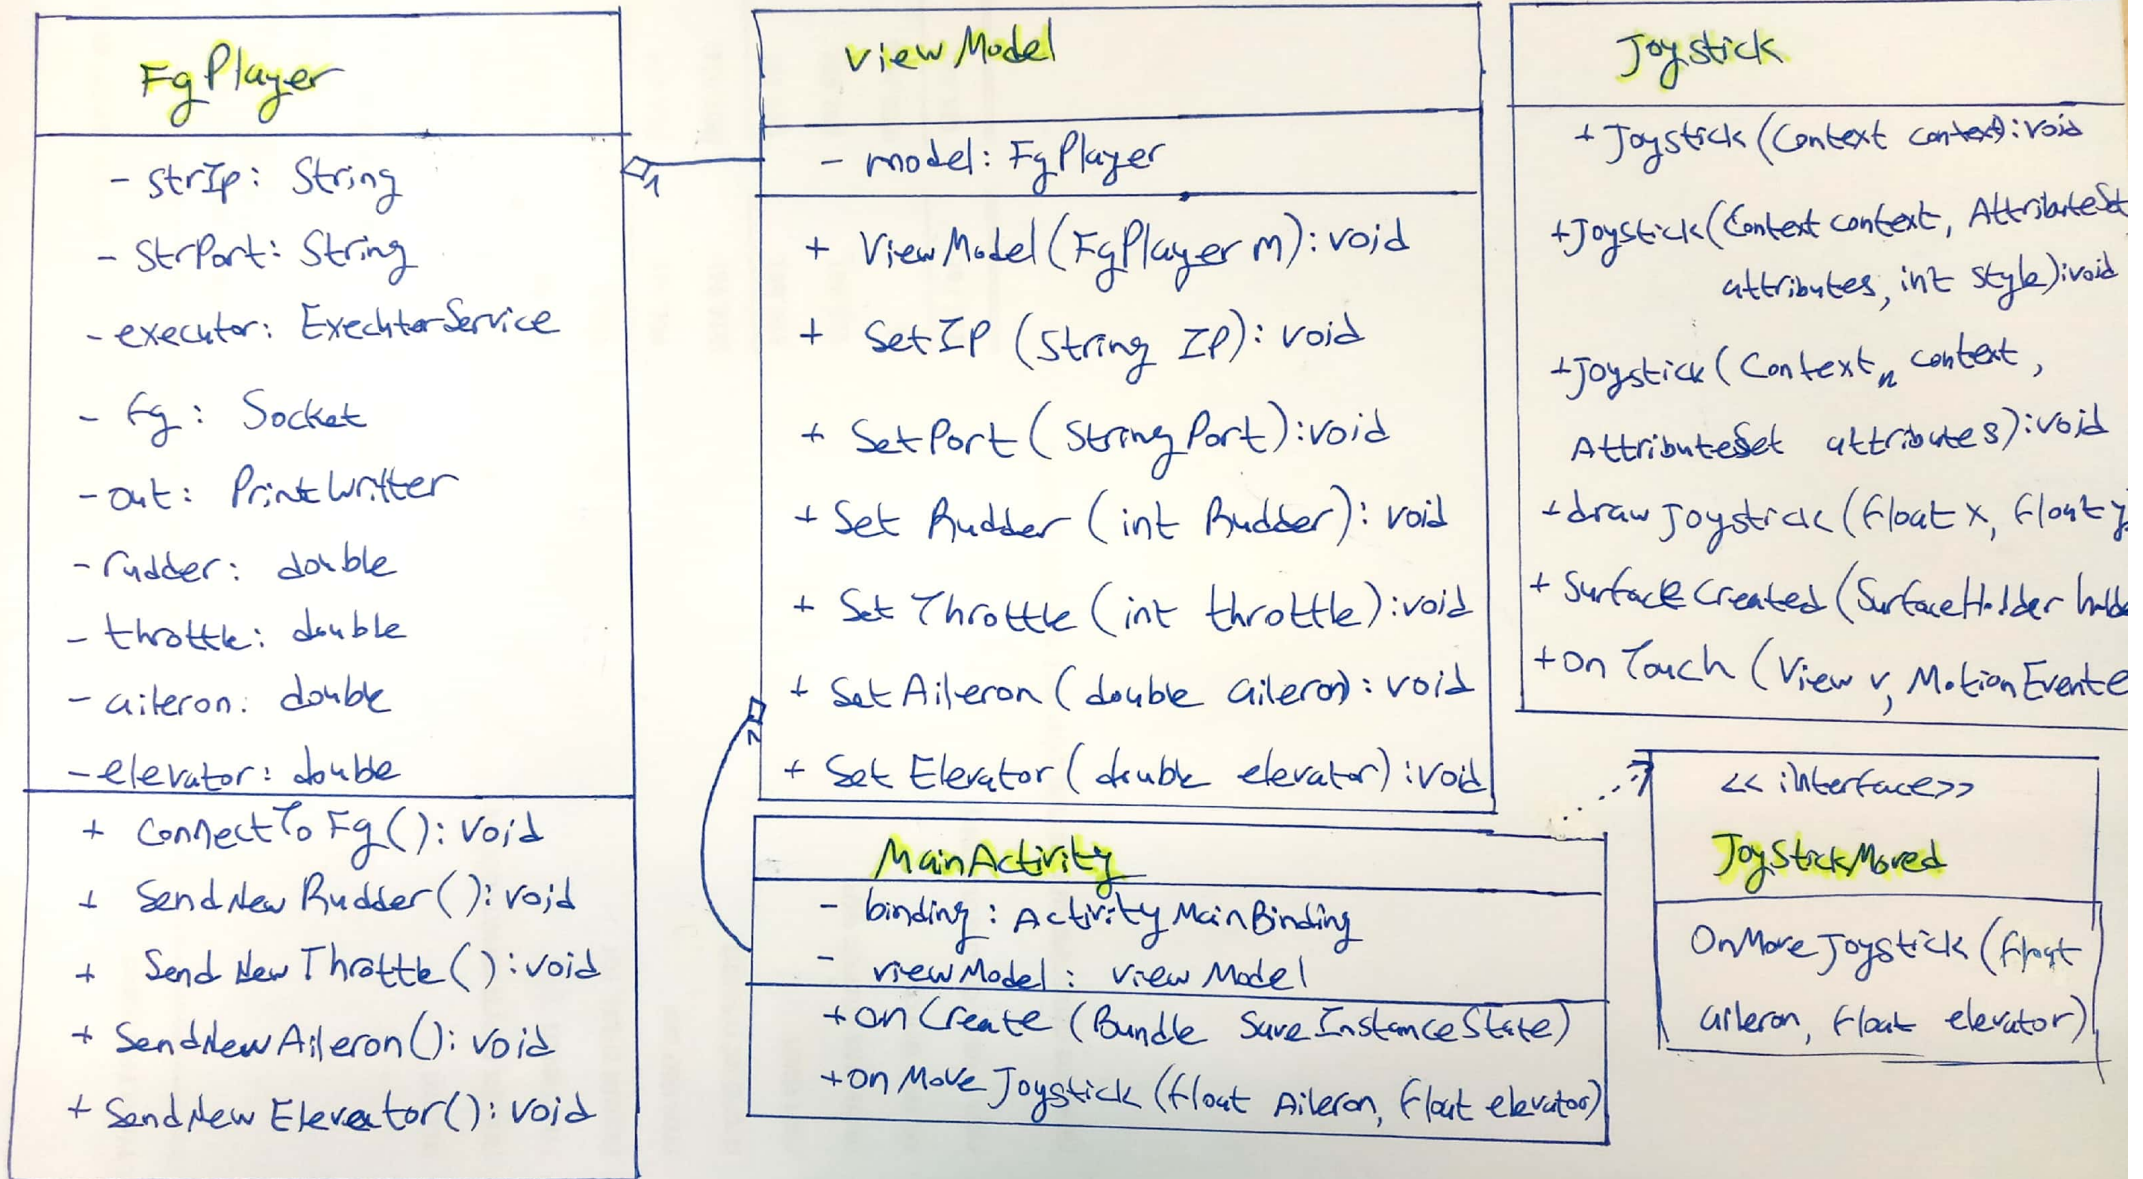 FgPlayer
- strIp: String
- StrPort: String
- executor: ExechterService
- fg: Socket
- out: PrintWritter
- rudder: double
- throttle: double
- aileron: double
- elevator: double
+ ConnectToFg(): void
+ SendNewRudder(): void
+ SendNewThrottle(): void
+ SendNewAileron(): void
+ SendNewElevator(): void
1
viewModel
- model: FgPlayer
+ ViewModel(FgPlayer m): void
+ SetIP (String IP): void
+ SetPort (String Port): void
+ Set Rudder (int Rudder): void
+ Set Throttle (int throttle): void
+ Set Aileron (double aileron): void
+ Set Elevator (double elevator): void
MainActivity
- binding: ActivityMainBinding
- viewModel: viewModel
+ onCreate (Bundle SaveInstanceState)
+ onMoveJoystick (float Aileron, float elevator)
Joystick
+ Joystick (Context context): void
+ Joystick (Context context, AttributeSet
attributes, int style): void
+ Joystick (Context context,
AttributeSet attributes): void
+ drawJoystick (float x, float y
+ SurfaceCreated (SurfaceHolder holde
+ onTouch (View v, MotionEvent e
<< interface>>
JoyStickMoved
OnMoveJoystick (float
aileron, float elevator)